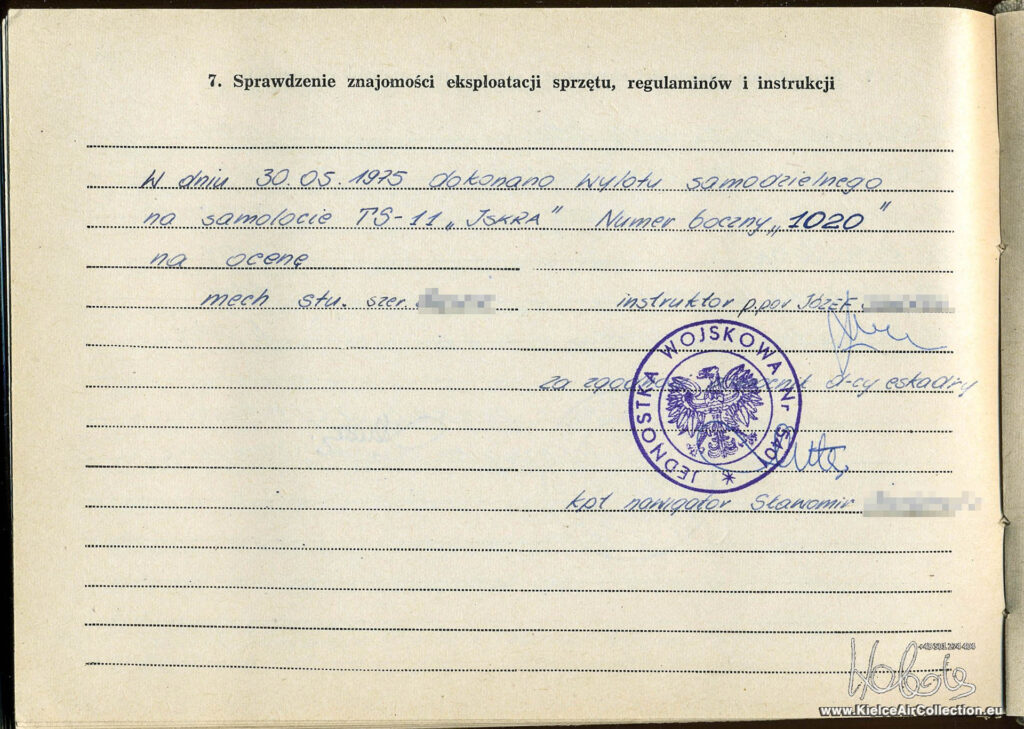 7. Sprawdzenie znajomości eksploatacji sprzętu, regulaminów i instrukcji
W dniu 30.05.1975 dokonano wylotu samodzielnego
na samolocie TS-11 „ISKRA" Numer boczny „1020"
na ocenę
mech stu. szer.
instruktor p.por JÓZEF
za d-cy eskadry
JEDNOSTKA WOJSKOWA Nr 5407 *
kpt nawigator Sławomir
www.KielceAirCollection.eu